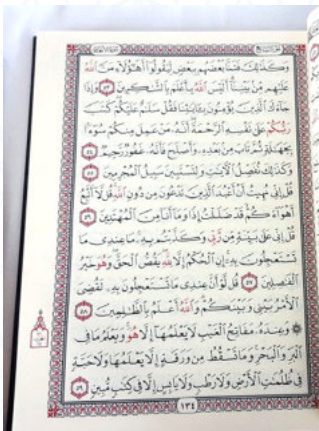 وَكَذَٰلِكَ فَتَنَّا بَعْضَهُم بِبَعْضٍ لِّيَقُولُوٓا۟ أَهَـٰٓؤُلَآءِ مَنَّ ٱللَّهُ
عَلَيْهِم مِّنۢ بَيْنِنَآ أَلَيْسَ ٱللَّهُ بِأَعْلَمَ بِٱلشَّـٰكِرِينَ ٥٣ وَإِذَا
جَآءَكَ ٱلَّذِينَ يُؤْمِنُونَ بِـَٔايَـٰتِنَا فَقُلْ سَلَـٰمٌ عَلَيْكُمْ كَتَبَ
رَبُّكُمْ عَلَىٰ نَفْسِهِ ٱلرَّحْمَةَ أَنَّهُۥ مَنْ عَمِلَ مِنكُمْ سُوٓءًۢا
بِجَهَـٰلَةٍ ثُمَّ تَابَ مِنۢ بَعْدِهِۦ وَأَصْلَحَ فَأَنَّهُۥ غَفُورٌ رَّحِيمٌ ٥٤
وَكَذَٰلِكَ نُفَصِّلُ ٱلْـَٔايَـٰتِ وَلِتَسْتَبِينَ سَبِيلُ ٱلْمُجْرِمِينَ ٥٥
قُلْ إِنِّى نُهِيتُ أَنْ أَعْبُدَ ٱلَّذِينَ تَدْعُونَ مِن دُونِ ٱللَّهِ قُل لَّآ أَتَّبِعُ
أَهْوَآءَكُمْ قَدْ ضَلَلْتُ إِذًا وَمَآ أَنَا۠ مِنَ ٱلْمُهْتَدِينَ ٥٦
قُلْ إِنِّى عَلَىٰ بَيِّنَةٍ مِّن رَّبِّى وَكَذَّبْتُم بِهِۦ مَا عِندِى مَا
تَسْتَعْجِلُونَ بِهِۦٓ إِنِ ٱلْحُكْمُ إِلَّا لِلَّهِ يَقُصُّ ٱلْحَقَّ وَهُوَ خَيْرُ
ٱلْفَـٰصِلِينَ ٥٧ قُل لَّوْ أَنَّ عِندِى مَا تَسْتَعْجِلُونَ بِهِۦ لَقُضِىَ
ٱلْأَمْرُ بَيْنِى وَبَيْنَكُمْ وَٱللَّهُ أَعْلَمُ بِٱلظَّـٰلِمِينَ ٥٨
۞ وَعِندَهُۥ مَفَاتِحُ ٱلْغَيْبِ لَا يَعْلَمُهَآ إِلَّا هُوَ وَيَعْلَمُ مَا فِى
ٱلْبَرِّ وَٱلْبَحْرِ وَمَا تَسْقُطُ مِن وَرَقَةٍ إِلَّا يَعْلَمُهَا وَلَا حَبَّةٍ
فِى ظُلُمَـٰتِ ٱلْأَرْضِ وَلَا رَطْبٍ وَلَا يَابِسٍ إِلَّا فِى كِتَـٰبٍ مُّبِينٍ ٥٩
١٣٤